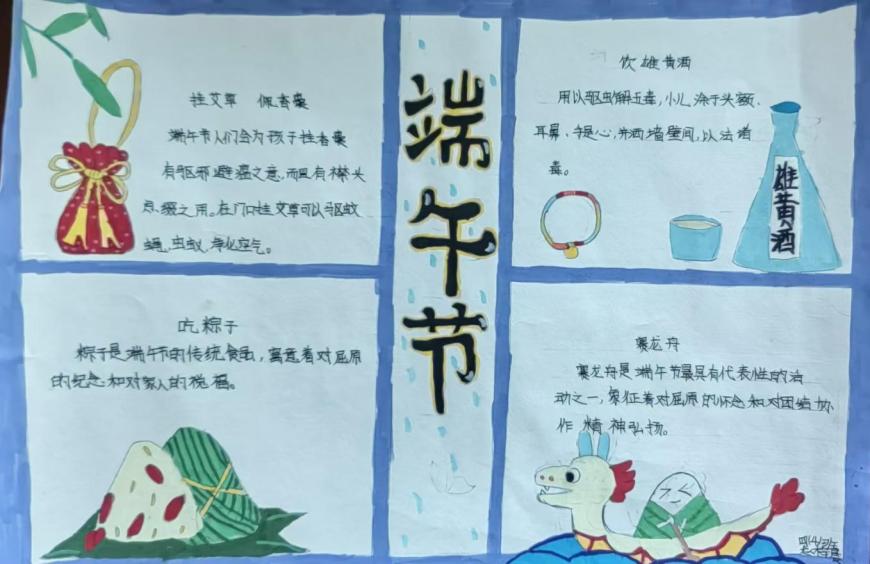 挂艾草 佩香囊
端午节人们会为孩子挂香囊
有驱邪避瘟之意,而且有襟头
点缀之用。在门口挂艾草可以驱蚊
蝇,虫蚁,净化空气。
吃粽子
粽子是端午节的传统食品,寓意着对屈原
的纪念和对家人的祝福。
端午节
饮雄黄酒
用以驱虫解五毒,小儿涂于头额、
耳鼻、手足心,并洒墙壁间,以法诸
毒。
雄黄酒
赛龙舟
赛龙舟是端午节最具有代表性的活
动之一,象征着对屈原的怀念和对团结协
作精神弘扬。